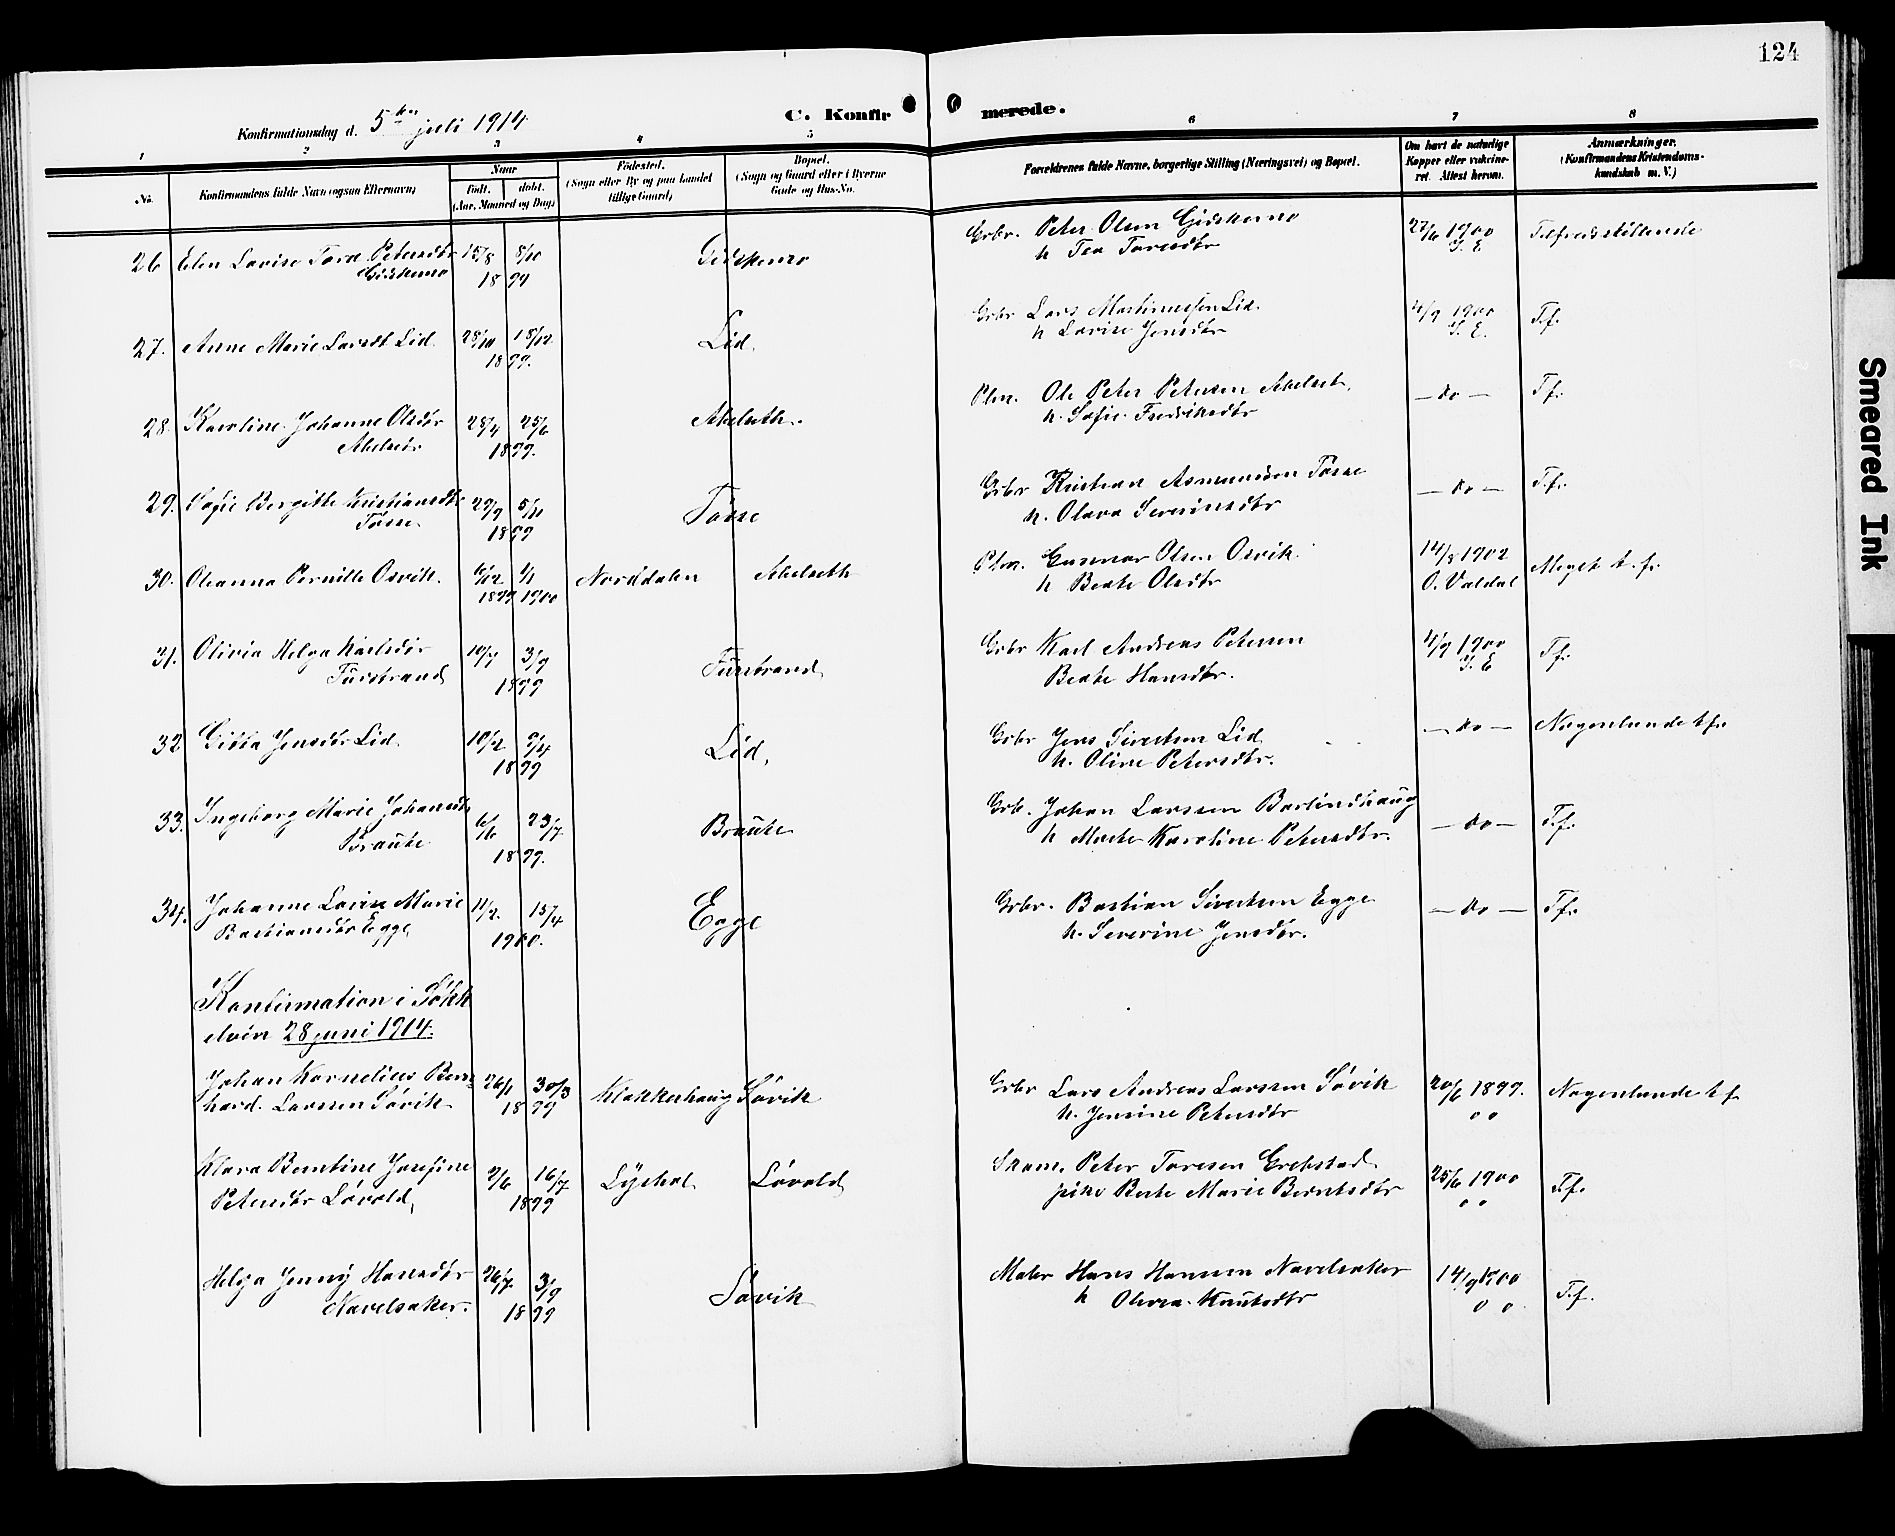 124
Konfirmationsdag d. 5te juli 1914
C. Konfirmerede.
1 2 3 4 5 6 7 8
No.
Konfirmandens fulde Navn (ogsaa Efternavn)
Naar
født. døbt.
(Aar, Maaned og Dag)
Fødested.
(Sogn eller By og paa Landet
tillige Gaard)
Bopæl.
(Sogn og Gaard eller i Byerne
Gade og Hus-No.
Forældrenes fulde Navne, borgerlige Stilling (Næringsvei) og Bopæl.
Om havt de naturlige
Kopper eller vakcine-
ret. Attest herom.
Anmærkninger.
(Konfirmandens Kristendoms-
kundskab m. V.)
26 Elen Lovise Tora Petersdtr 15/8 8/10 Gidskemo Grbr. Peter Olsen Gidskemo 27/6 1900 Tilfredsstillende
Gidskemo 1899 h Tea Toresdtr I. E.
27. Anne Marie Larsdt Lid. 28/10 18/12 Lid. Grbr Lars Martinussen Lid. 4/9 1900 T.f.
1899. h Lovise Jensdtr I. E.
28. Karoline Johanne Olsdtr 28/4 25/6 Akelseth. Plm. Ole Peter Petersen Akelset. — do — T.f.
Akelsetr 1899. h. Sofie Fredriksdtr
29. Sofie Bergitte Kristiansdtr 29/9 5/11 Tøsse Grbr Kristian Asmundsen Tøsse — do — T.f.
Tøsse. 1899 h. Olava Severinsdtr
30. Oleanna Pernille Osvik. 6/12 1/1 Norddalen Akelseth Plm. Gunnar Olsen Osvik. 14/8 1902 Meget t. f.
1899 1900 h Beate Olsdtr O. Valdal
31. Olivia Helga Karlsdtr 10/7 3/9 Fürstrand Grbr Karl Andreas Petersen 4/9 1900 T.f.
Fürstrand 1899 Beate Hansdtr. I. E
32. Gitta Jensdtr Lid. 10/2 9/4 Lid. Grbr Jens Sivertsen Lid — do — Nogenlunde t.f.
1899 h. Oline Petersdtr.
33. Ingeborg Marie Johansdtr 6/6 23/7 Braute Grb. Johan Larssen Barlindhaug — do — T.f.
Braute. 1899. h Marte Karoline Petersdtr.
34. Johanne Lovise Marie 11/2. 15/4 Egge Grbr. Bastian Sivertsen Egge — do — T.f.
Bastiansdtr Egge 1900. h. Severine Jensdtr.
Konfirmation i Søkk
elven 28 juni 1914.
Johan Kornelius Bern- 26/1 30/3 Klokkerhaug Søvik Grbr Lars Andreas Larssen Søvik 20/6 1899. Nogenlunde t.f.
hard. Larssen Søvik. 1899 h. Jensine Petersdtr o o
Klara Berntine Josefine 9/6 16/7 Lyshol Løvold Skom. Peter Toresen Grebstad 25/6 1900 T.f.
Petersdtr Løvold, 1899 pike Berte Marie Berntsdtr o o
Helga Jenny Hansdtr 26/7. 3/9 Søvik Maler Hans Hansen Navelsaker 14/9 1900 T.f.
Navelsaker. 1899 h Olivia Knutsdtr o o
Smeared Ink